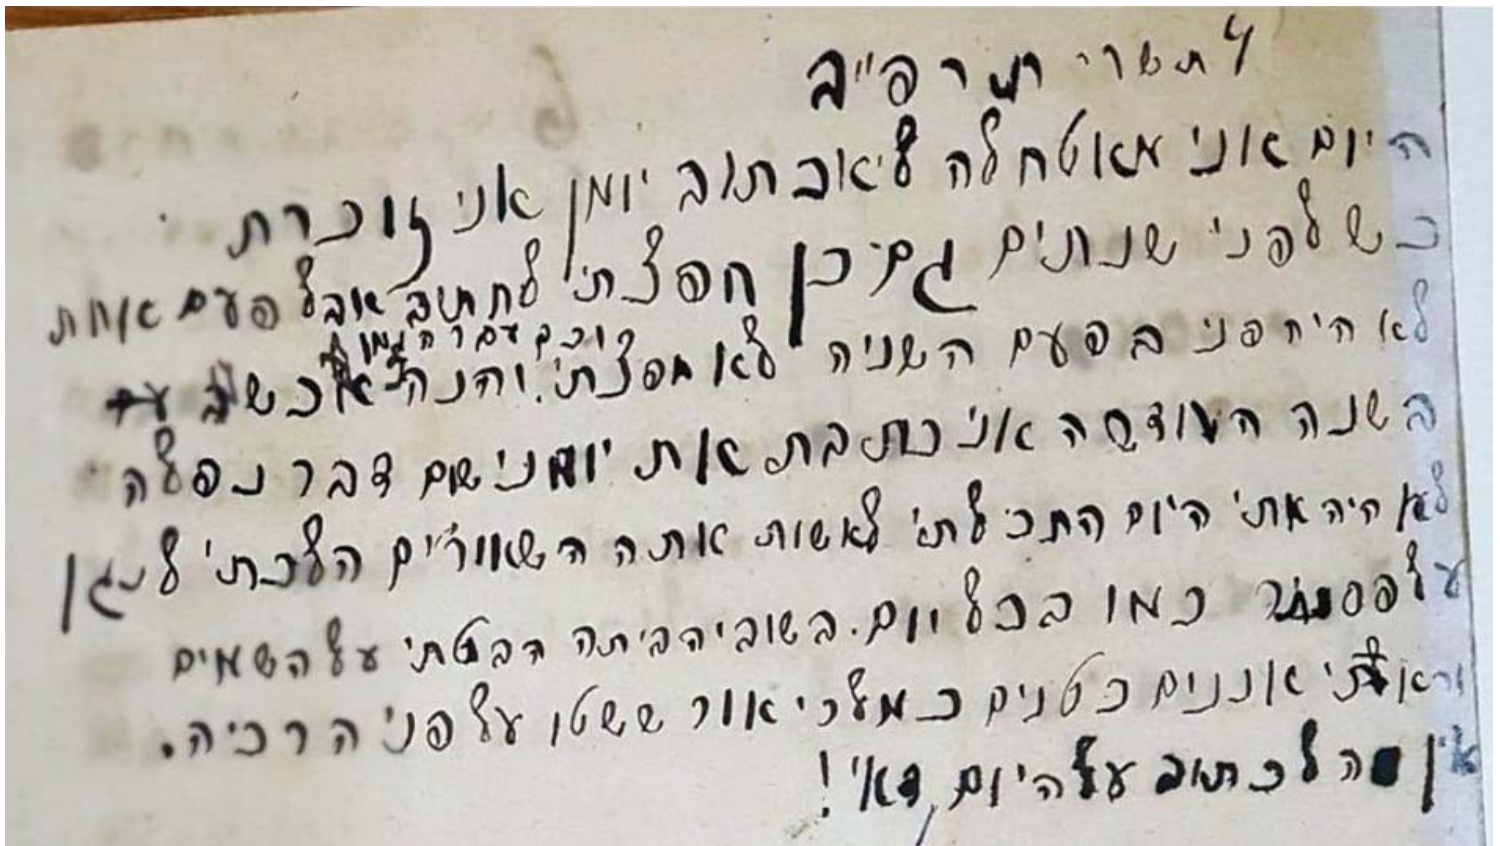 ץ תשרי תרפ"ב
היום אני מאטחלה ליאכתוב יומן אני זוכרת
כשלפני שנתים גם כן חפצתי לחתוב אבל פעם אחת
לא היה פני בפעם השניה לא חפצתי. והנה עד
וכבם עבר הזמן
בשנה העודשה אני כתבת את יומני שום דבר נפלה
לא היה אתי היום התכילתי לאשות את ה השאורים הלכתי לנגן
על פסנתר כמו בכל יום. בשובי הביתה הבטתי על השמים
וראתי אננים כטנים כמלכי אור ששטו על פני הרכיה.
אין מה לכתוב על היום, דאי!